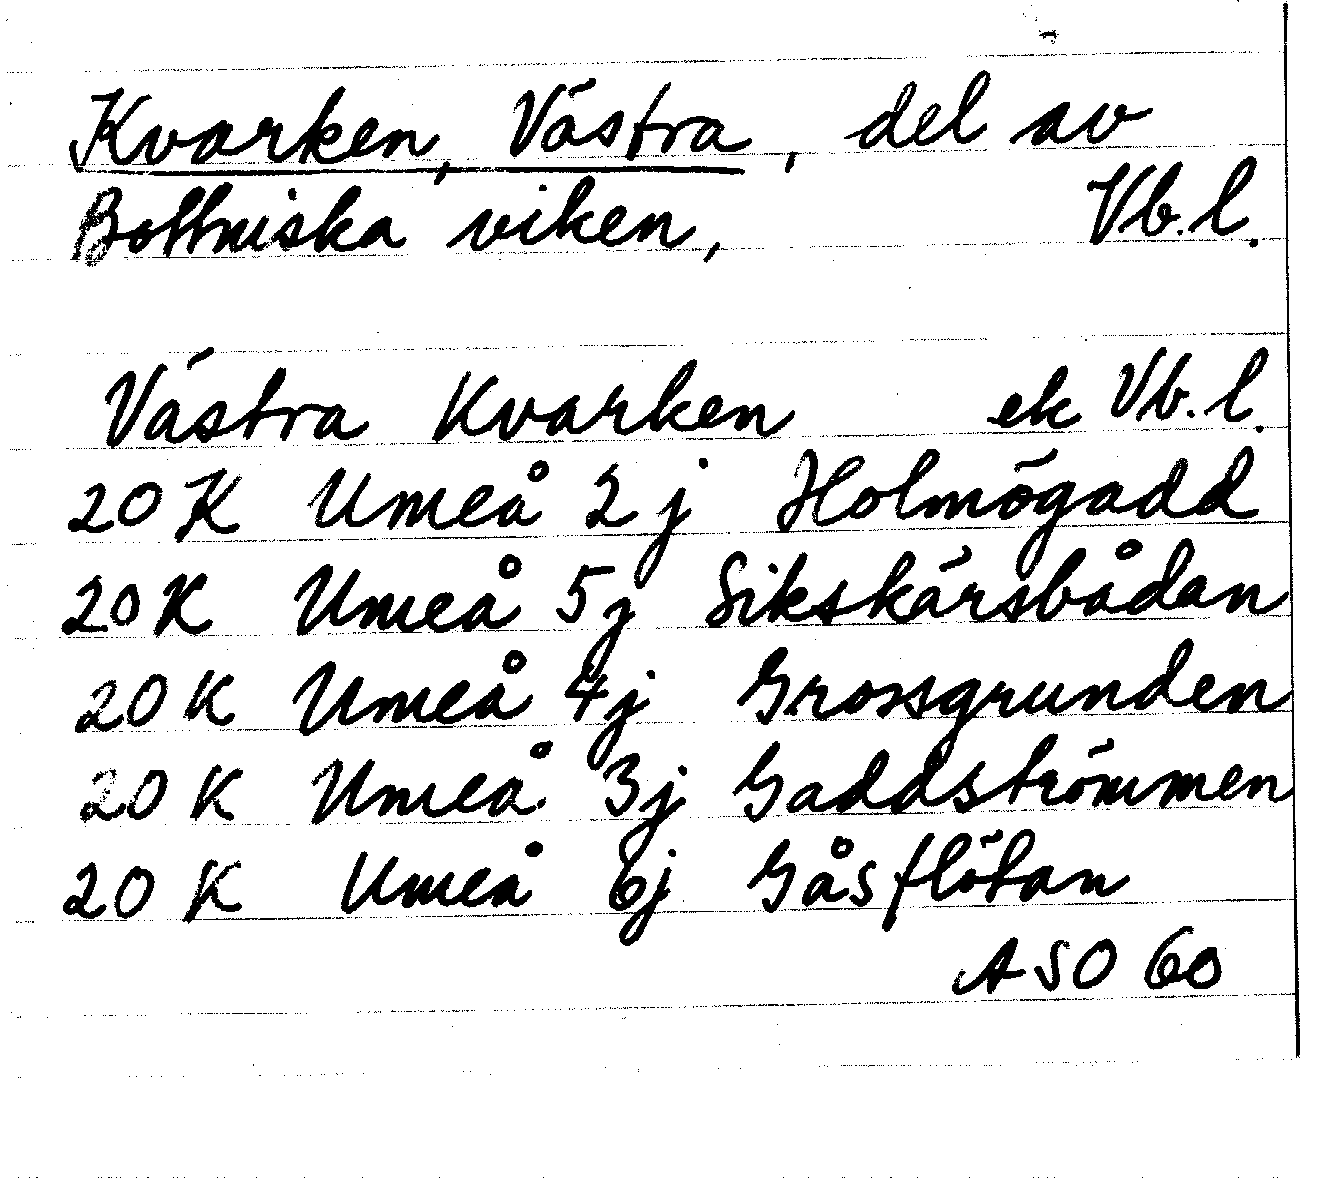 Kvarken, Västra, del av
Bottniska viken, Vb.l.
Västra Kvarken ek Vb.l.
20 K Umeå 2j Holmögadd
20 K Umeå 5j Sikskärsbådan
20 K Umeå 4j Grossgrunden
20 K Umeå 3j Gaddströmmen
20 K Umeå 6j Gåsflötan
ASO 60